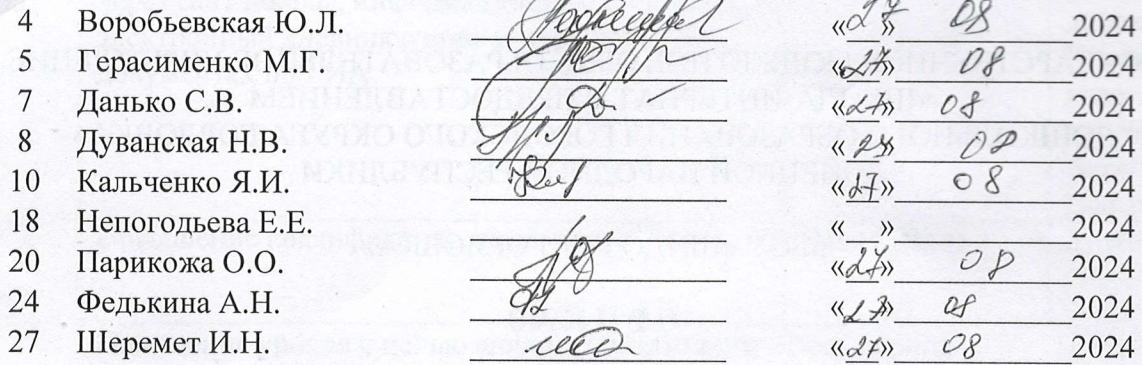 4 Воробьевская Ю.Л. «27» 08 2024
5 Герасименко М.Г. «27» 08 2024
7 Данько С.В. «27» 08 2024
8 Дуванская Н.В. «27» 08 2024
10 Кальченко Я.И. «27» 08 2024
18 Непогодьева Е.Е. « » 2024
20 Парикожа О.О. «27» 08 2024
24 Федькина А.Н. «27» 08 2024
27 Шеремет И.Н. «27» 08 2024